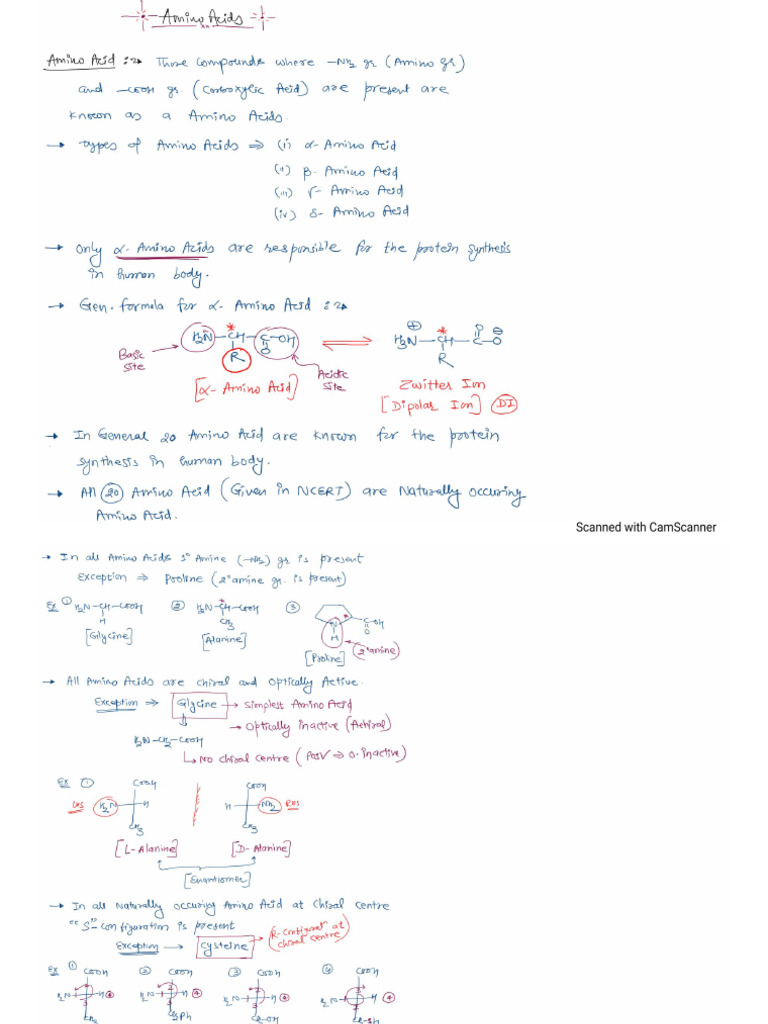 Amino Acids
Amino Acid :→ Those compounds where -NH2 gr (Amino gr)
and -COOH gr. (Carboxylic Acid) are present are
known as a Amino Acids.
→ types of Amino Acids ⇒ (i) α-Amino Acid
(ii) β-Amino Acid
(iii) γ-Amino Acid
(iv) δ-Amino Acid
→ Only α-Amino Acids are responsible for the protein synthesis
in human body.
→ Gen. formula for α-Amino Acid :→
H2N-CH-C-OH ⇌ H3N-CH-C-O
* ⊕ * O ⊖
R O R
Basic site
Acidic site
[α-Amino Acid]
Zwitter Ion
[Dipolar Ion] DI
→ In General 20 Amino Acid are known for the protein
synthesis in human body.
→ All 20 Amino Acid (Given in NCERT) are Naturally occuring
Amino Acid.
Scanned with CamScanner
→ In all Amino Acids 1° Amine (-NH2) gr is present
Exception ⇒ Proline (2° amine gr. is present)
Ex ① H2N-CH-COOH ② H2N-CH-COOH ③ N C-OH
H CH3 H O
[Glycine] [Alanine] [Proline] 2° amine
→ All Amino Acids are chiral and optically Active.
Exception ⇒ Glycine → Simplest Amino Acid
→ Optically inactive (Achiral)
H2N-CH2-COOH
↳ No chiral centre (POSV ⇒ O. inactive)
Ex ① COOH COOH
LHS H2N H H NH2 RHS
CH3 CH3
[L-Alanine] [D-Alanine]
[Enantiomer]
→ In all Naturally occuring Amino Acid at chiral centre
"S"-configuration is present
Exception → Cysteine → R-configuratn at
chiral centre
Ex ① COOH ② COOH ③ COOH ④ COOH
H2N 1 2 3 H ④ H2N 1 2 3 H ④ H2N 1 2 3 H ④ H2N 1 H ④
CH3 CH2Ph CH2-OH CH2-SH